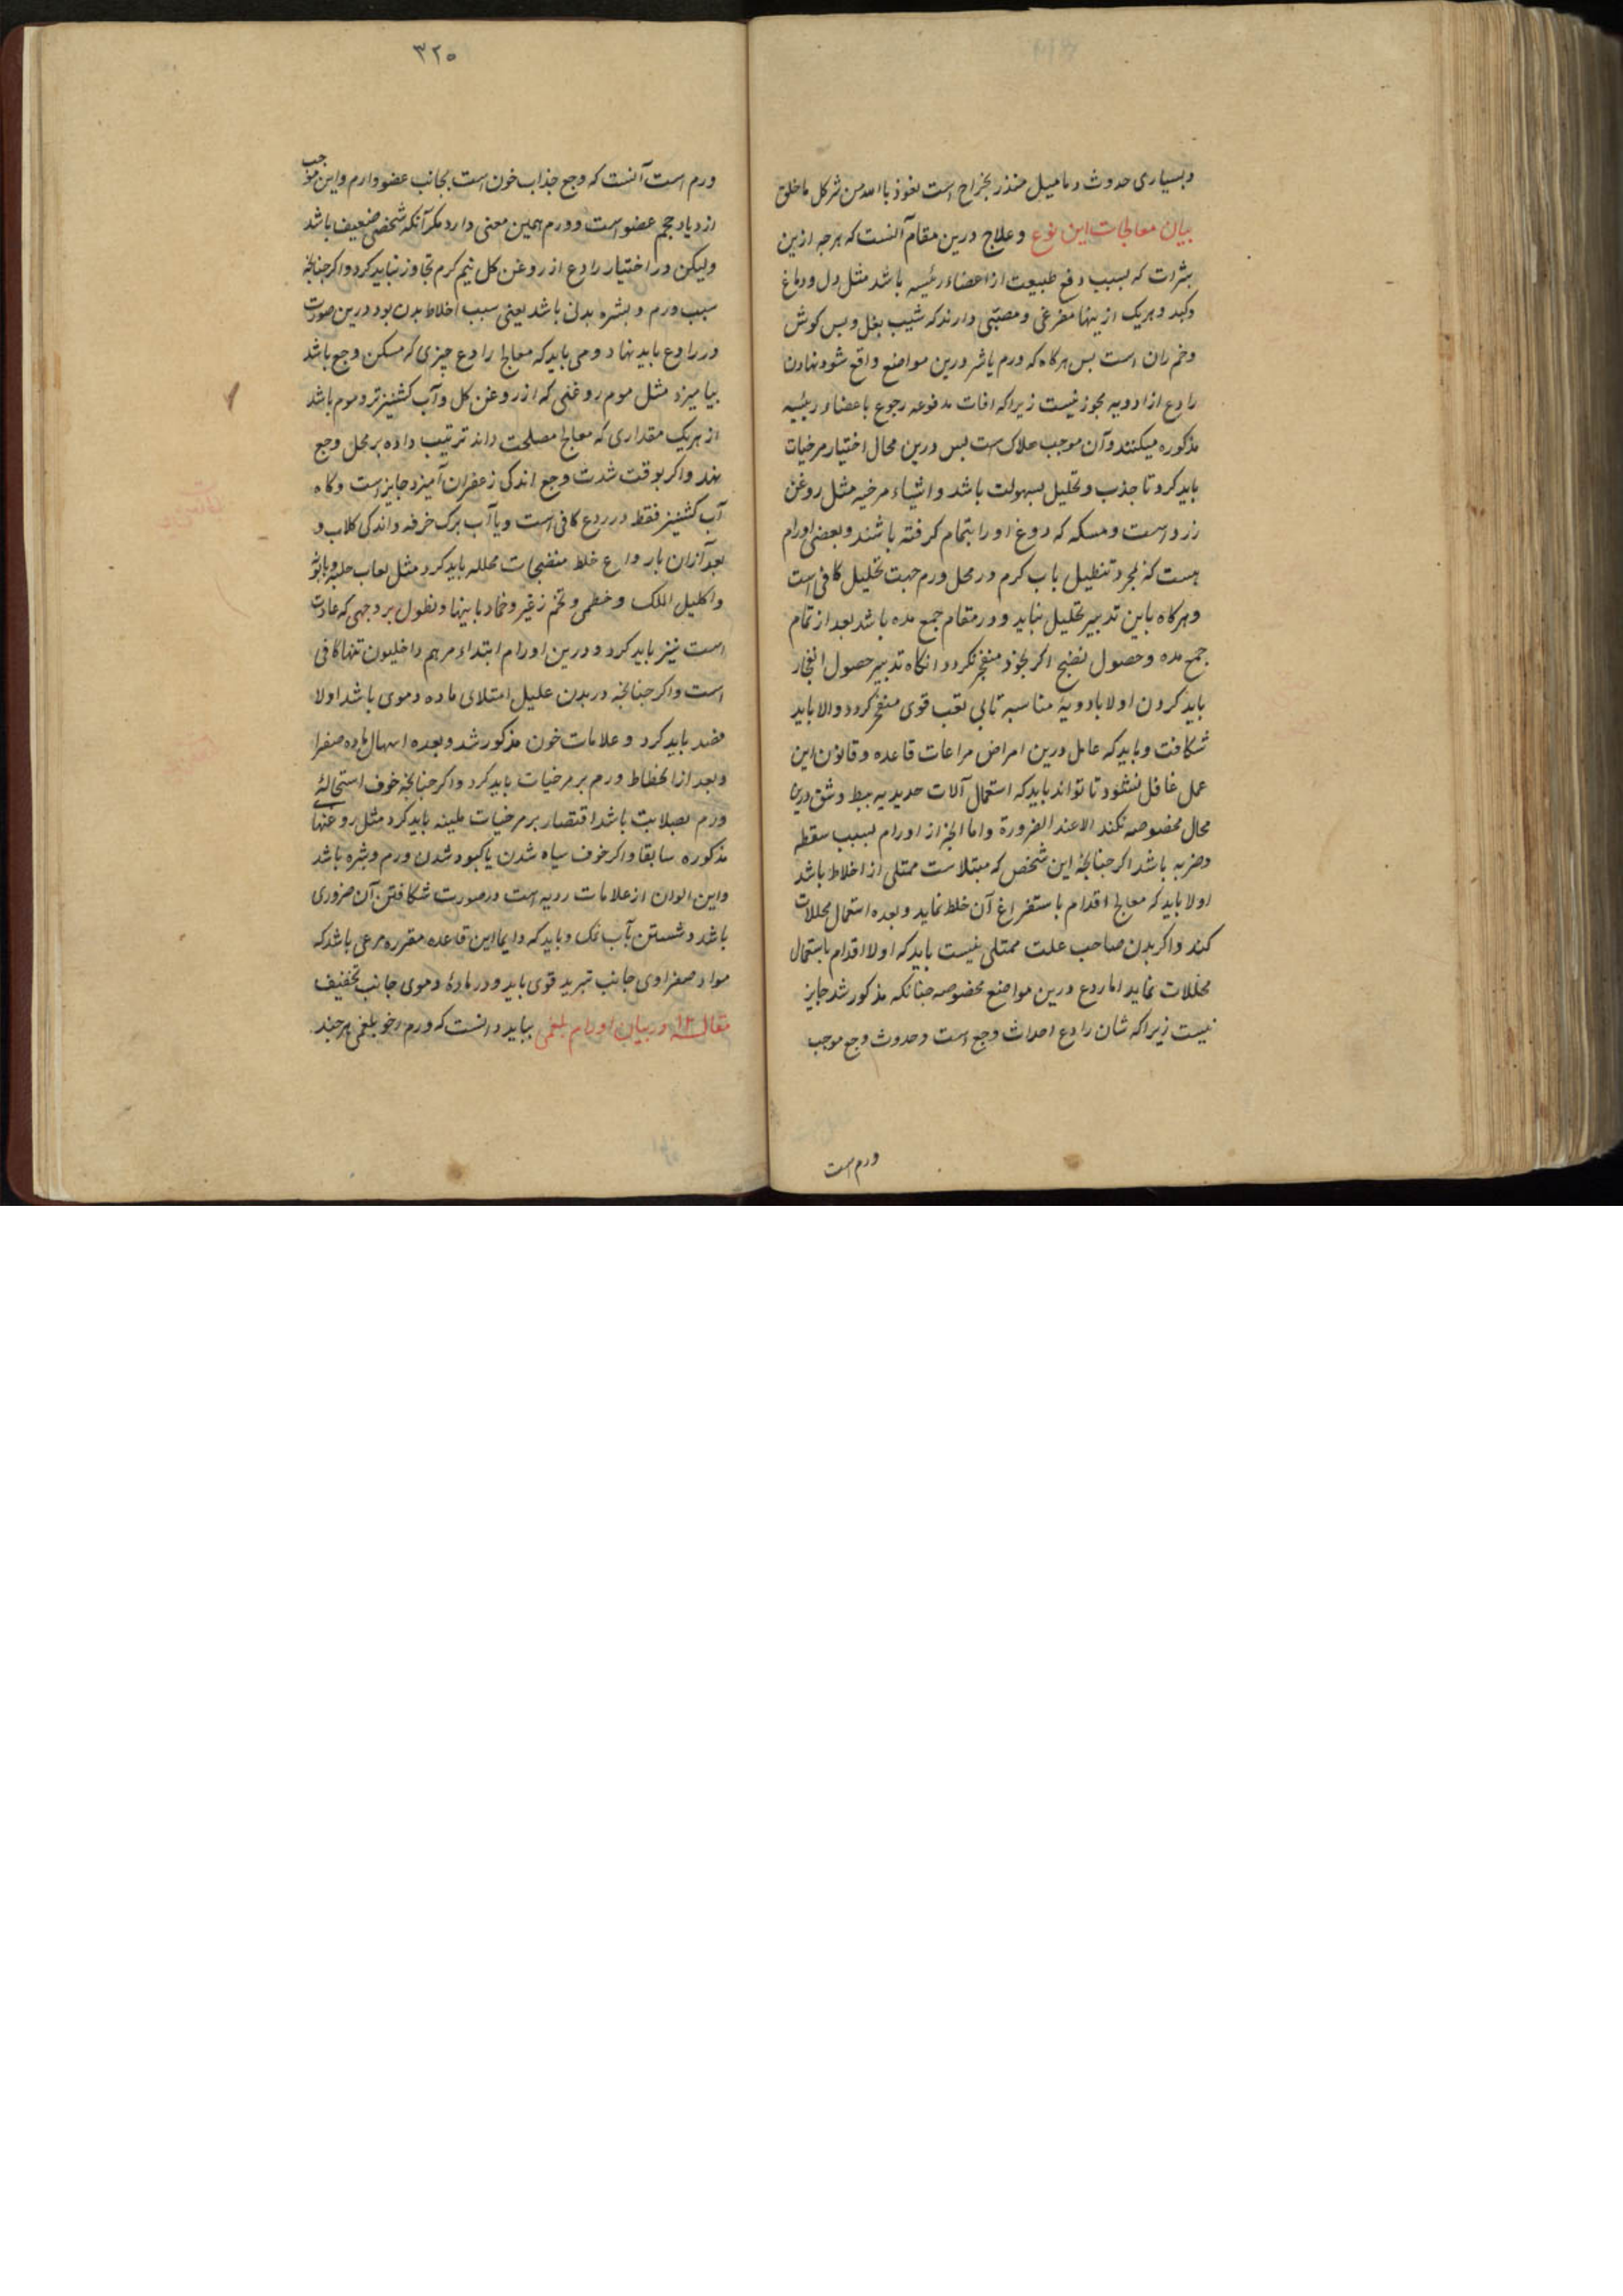 وبسیاری حدوث دمامیل منذر بخراج است نعوذ باالله من شر کل ما خلق
بیان معالجات این نوع وعلاج درین مقام آنست که هرجه ازین
بثرات که بسبب دفع طبیعت از اعضاء رئیسه باشد مثل دل ودماغ
وکبد وهریک ازینها مفرغی ومصبّی دارند که شیب بغل وبس کوش
وخم ران است بس هرکاه که ورم یاشر درین مواضع واقع شود نهادن
رادع از ادویه مجوز نیست زیراکه افات مدفوعه رجوع باعضاء رئیسه
مذکوره میکنند وآن موجب هلاک است بس درین محال اختیار مرخیات
باید کرد تا جذب وتحلیل بسهولت باشد واشیاء مرخیه مثل روغن
زرد است ومسکه که دوغ اورا بتمام کرفته باشند وبعضی اورام
هست که بمجرد تنطیل باب کرم در محل ورم جهت تحلیل کافی است
وهرکاه باین تدبیر تحلیل نیابد ودر مقام جمع مده باشد بعد از تمام
جمع مده وحصول نضج اکر بخود منفجر نکردد انکاه تدبیر حصول انفجار
باید کردن اولا بادویهٔ مناسبه تا بی تعب قوی منفجر کردد والا باید
شکافت وباید که عامل درین امراض مراعات قاعده وقانون این
عمل غافل نشود تا تواند باید که استعمال آلات حدیدیه ببط وشق درین
محال مخصوصه نکند الا عند الضرورة واما انجه از اورام بسبب سقطه
وضربه باشد اکر جنانجهٔ این شخص که مبتلاست ممتلی از اخلاط باشد
اولا باید که معالج اقدام باستفراغ آن خلط نماید وبعده استعمال محللات
کند واکر بدن صاحب علت ممتلی نیست باید که اولا اقدام باستعمال
محللات نماید اما ردع درین مواضع مخصوصه جنانکه مذکور شد جایز
نیست زیراکه شان رادع احداث وجع است وحدوث وجع موجب
ورم است
۳۲۵
ورم است آنست که وجع جذاب خون است بجانب عضو وارم واین موجب
ازدیاد حجم عضو است وورم همین معنی دارد مکر آنکه شخصی ضعیف باشد
ولیکن در اختیار رادع از روغن کل نیم کرم تجاوز نباید کرد واکر جنانجه
سبب ورم وبشره بدنی باشد یعنی سبب اخلاط بدن بود درین صورت
در رادع باید نهاد ومی باید که معالج با رادع چیزی که مسکن وجع باشد
بیامیزد مثل موم روغنی که از روغن کل وآب کشنیز تر وموم باشد
از هریک مقداری که معالج مصلحت داند ترتیب داده بر محل وجع
نهد واکر بوقت شدت وجع اندکی زعفران آمیزد جایز است وکاه
آب کشنیز فقط در ردع کافی است ویا آب برک خرفه واندکی کلاب و
بعد ازان با رداع خلط منضجات محلله باید کرد مثل لعاب حلبه وبابونه
واکلیل الملک وخطمی وتخم زغیر وضماد باینها ونطول بر وجهی که عادت
است نیز باید کرد ودرین اورام ابتداء مرهم داخلیون تنها کافی
است واکر جنانجه در بدن علیل امتلای ماده دموی باشد اولا
فصد باید کرد وعلامات خون مذکور شد وبعده اسهال ماده صفرا
وبعد از انحطاط ورم بر مرخیات باید کرد واکر جنانجه خوف استحالهٔ
ورم بصلابت باشد اقتصار بر مرخیات ملینه باید کرد مثل روغنها
مذکوره سابقا واکر خوف سیاه شدن یا کبود شدن ورم وبشره باشد
واین الوان از علامات ردیه است درصورت شکافتن آن ضروری
باشد وشستن بآب نمک وباید که دایما این قاعده مقرره مرعی باشد که
مواد صفراوی جانب تبرید قوی باید ودر مادهٔ دموی جانب تخفیف
مقاله ۱۲ در بیان اورام بلغمی بباید دانست که ورم رخو بلغمی هرجند